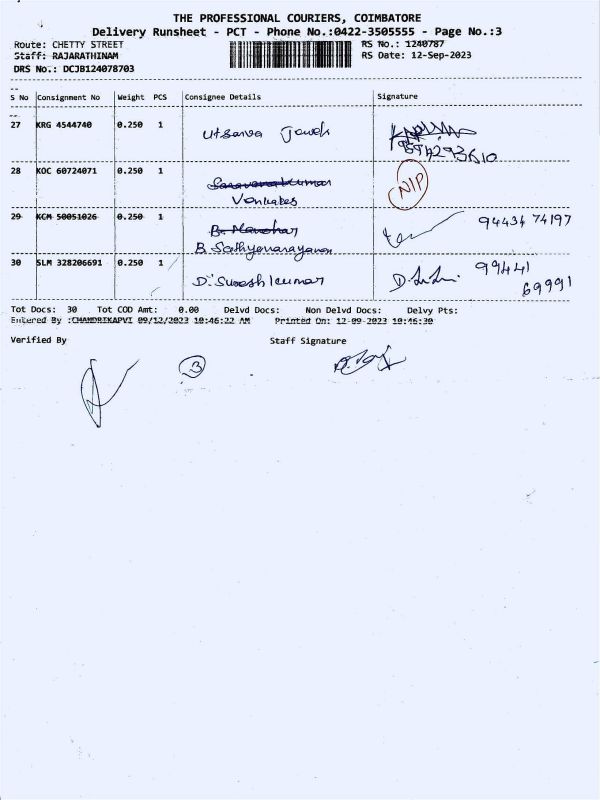 THE PROFESSIONAL COURIERS, COIMBATORE
Delivery Runsheet - PCT - Phone No.:0422-3505555 - Page No.:3
Route: CHETTY STREET RS No.: 1240787
Staff: RAJARATHINAM RS Date: 12-Sep-2023
DRS No.: DCJB124078703
S No Consignment No Weight PCS Consignee Details Signature
27 KRG 4544740 0.250 1 Utsava
28 KOC 60724071 0.250 1 Saravanakumar NIP
Venkates
29 KCM 50051026 0.250 1 B. Manohar 94434 74197
B. Sathyanarayanan
30 SLM 328206691 0.250 1 D. Sureshkumar 99441
69991
Tot Docs: 30 Tot COD Amt: 0.00 Delvd Docs: Non Delvd Docs: Delvy Pts:
Entered By :CHANDRIKAPVI 09/12/2023 10:46:22 AM Printed On: 12-09-2023 10:46:30
Verified By Staff Signature
3